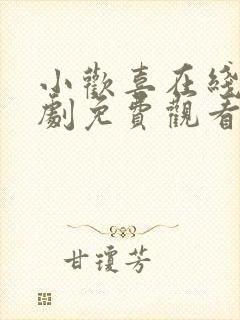 小歡喜在綫
劇免費觀看
甘瓊芳